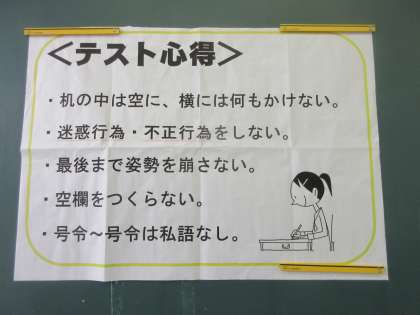 ＜テスト心得＞
・机の中は空に、横には何もかけない。
・迷惑行為・不正行為をしない。
・最後まで姿勢を崩さない。
・空欄をつくらない。
・号令～号令は私語なし。